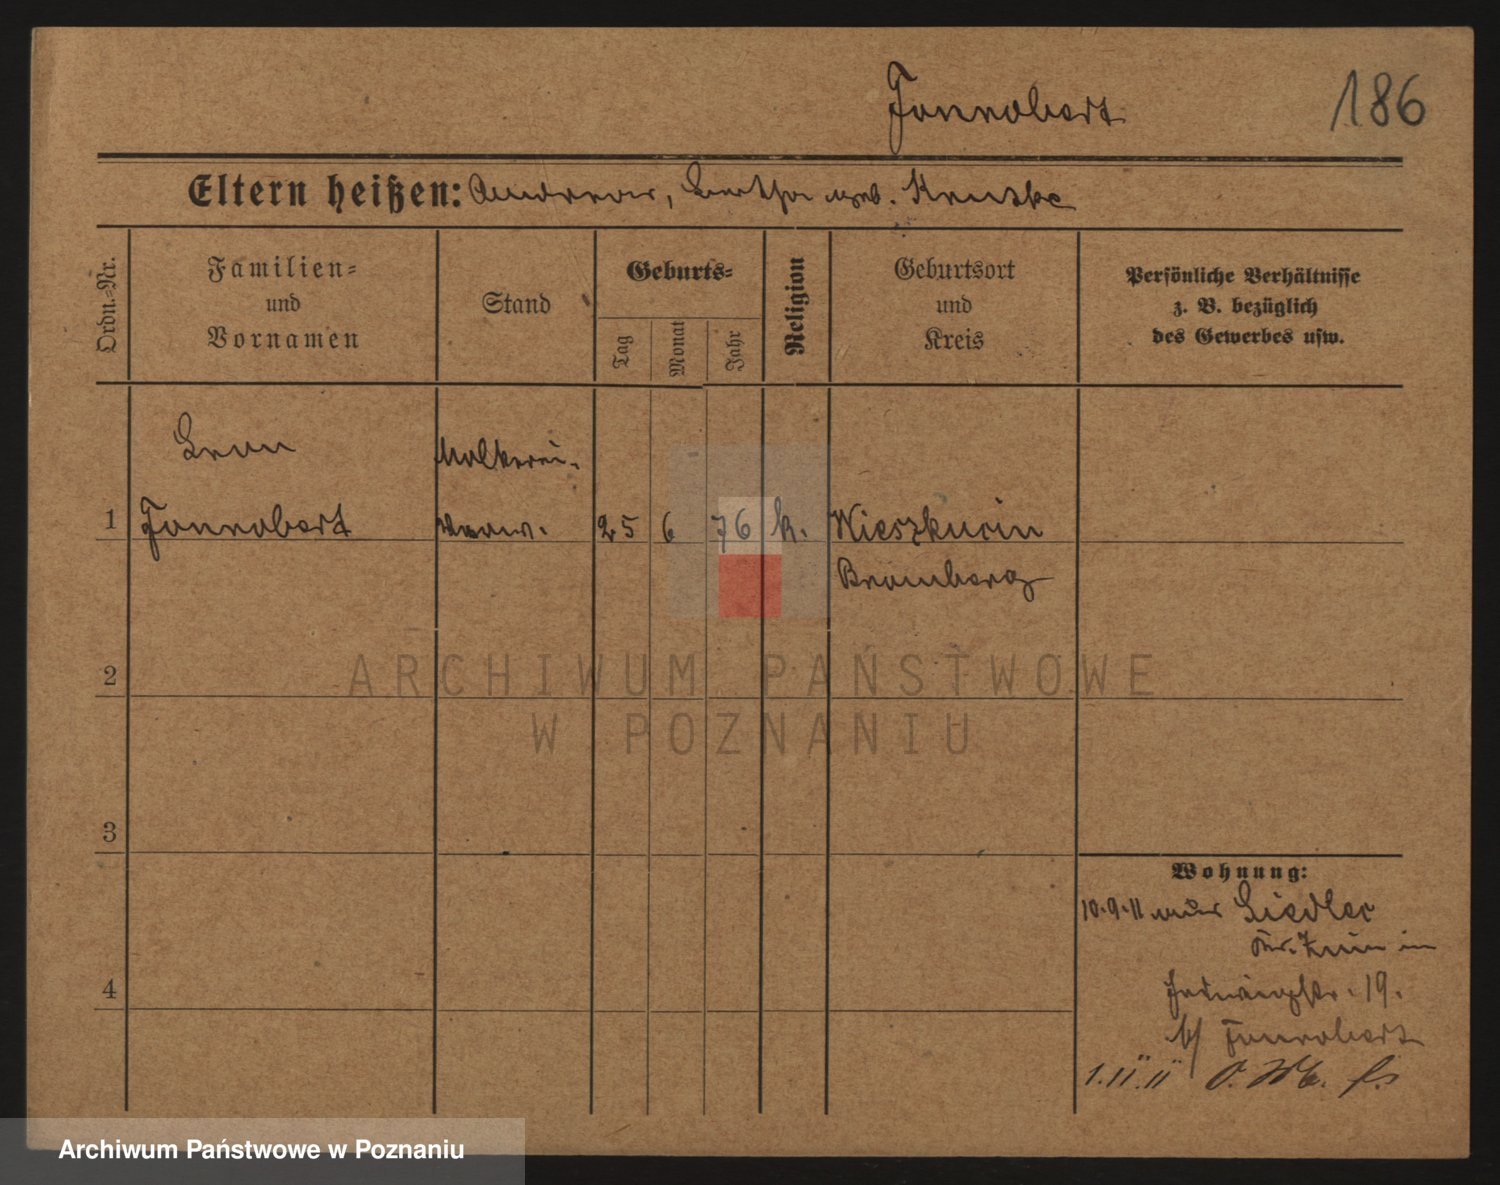 Fonrobert
186
Eltern heißen: Andreas, Bertha geb. Kruske
Ordn.-Nr.
Familien-
und
Vornamen
Stand
Geburts-
Tag
Monat
Jahr
Religion
Geburtsort
und
Kreis
Persönliche Verhältnisse
z. B. bezüglich
des Gewerbes usw.
Leon
Molkerei-
1 Fonrobert Verw. 25 6 76 k. Wieszkucin
Bromberg
2
3
4
Wohnung:
10.9.11 Siedler
Kr. Znin in
Hedwigstr. 19.
b/ Fonrobert
1.11.11
ARCHIWUM PAŃSTWOWE
W POZNANIU
Archiwum Państwowe w Poznaniu